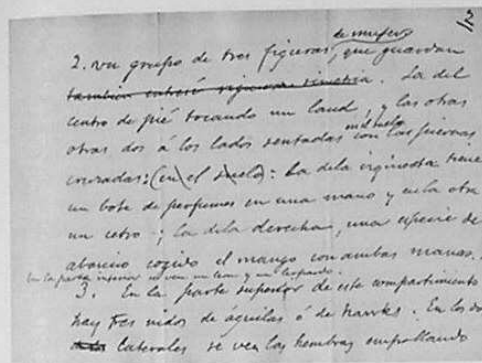 2
de mujeres
2. Un grupo de tres figuras, que guardan
tambien entre sí rigurosa simetria. La del
centro de pié tocando un laud, y las otras
en el suelo
otras dos á los lados sentadas con las piernas
cruzadas: (en el suelo): La de la izquierda tiene
un bote de perfumes en una mano y en la otra
un cetro; la de la derecha, una especie de
abanico cogido el mango con ambas manos.
En la parte inferior se ven un leon y un leopardo.
3. En la parte superior de este compartimiento
hay tres nidos de águilas ó de hawks. En los do
laterales se ven las hembras empollando